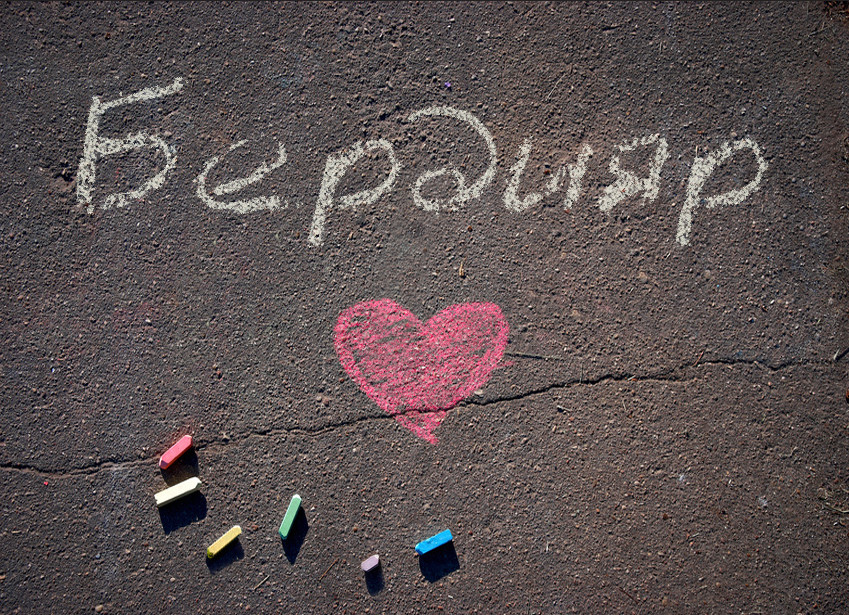 Бердияр